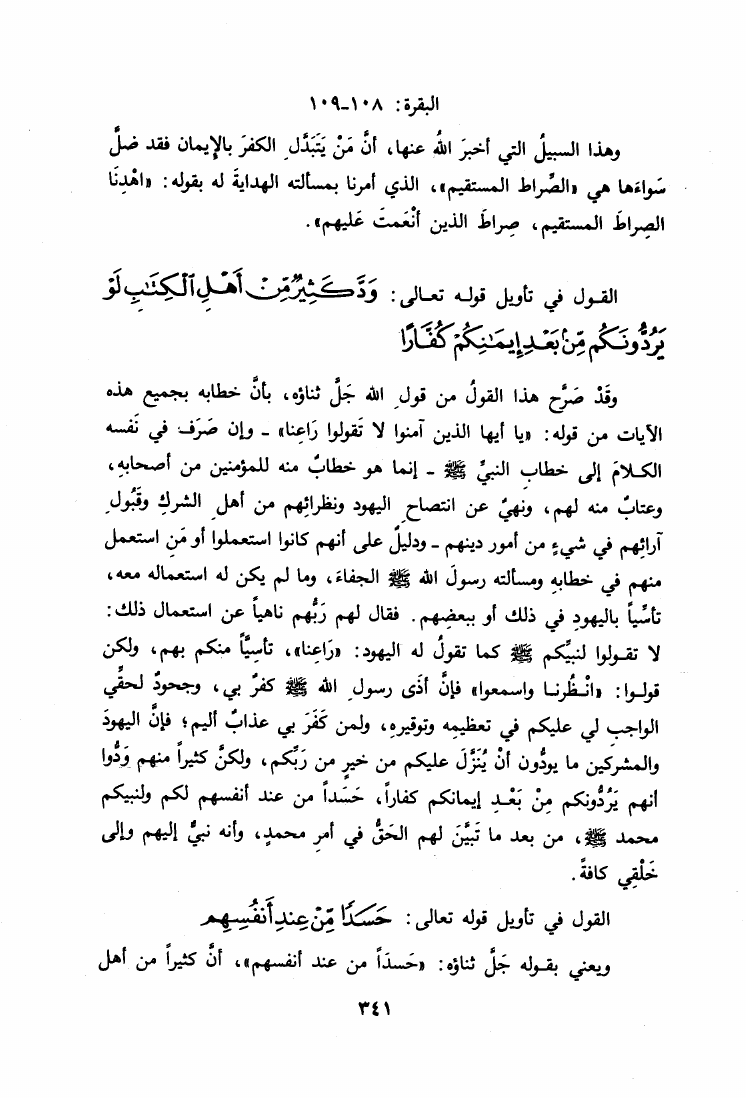 البقرة: ١٠٨-١٠٩
وهذا السبيلُ التي أخبرَ اللهُ عنها، أنَّ مَنْ يَتَبَدَّلِ الكفرَ بالإِيمان فقد ضلَّ
سَواءَها هي «الصِّراط المستقيم»، الذي أمرنا بمسألته الهدايةَ له بقوله: «اهْدِنَا
الصِراطَ المستقيم، صِراطَ الذين أنْعَمتَ عَليهم».
القـول في تأويل قولـه تعـالى: وَدَّ كَثِيرٌ مِّنْ أَهْلِ ٱلْكِتَٰبِ لَوْ
يَرُدُّونَكُم مِّنۢ بَعْدِ إِيمَٰنِكُمْ كُفَّارًا
وقَدْ صَرَّح هذا القولُ من قولِ الله جَلَّ ثناؤه، بأنَّ خطابه بجميع هذه
الآيات من قوله: «يا أيها الذين آمنوا لا تَقولوا رَاعِنا» - وإن صَرَف في نَفسه
الكـلامَ إلى خطابِ النبيِّ ﷺ - إنما هو خطابٌ منه للمؤمنين من أصحابهِ،
وعتابٌ منه لهم، ونهيٌ عن انتصاحِ اليهود ونظرائِهم من أهلِ الشركِ وقَبُولِ
آرائِهم في شيءٍ من أمور دينهم - ودليلٌ على أنهم كانوا استعملوا أو مَنِ استعمل
منهم في خطابهِ ومسألته رسولَ الله ﷺ الجفاءَ، وما لم يكن له استعماله معه،
تأسِّياً باليهودِ في ذلك أو ببعضِهم. فقال لهم رَبُّهم ناهياً عن استعمال ذلك:
لا تقـولوا لنبيِّكم ﷺ كما تقولُ له اليهود: «رَاعِنا»، تأسِيًّا منكم بهم، ولكن
قولـوا: «انْـظُرنـا واسمعوا» فإنَّ أذَى رسولِ الله ﷺ كفرٌ بي، وجحودٌ لحقِّي
الواجبِ لي عليكم في تعظيمِه وتوقيرهِ، ولمن كَفَرَ بي عذابٌ أليم؛ فإنَّ اليهودَ
والمشركين ما يودُّون أنْ يُنَزَّلَ عليكم من خيرٍ من رَبِّكم، ولكنَّ كثيراً منهم وَدُّوا
أنهم يَرُدُّونكم مِنْ بَعْـدِ إيمانكم كفاراً، حَسَداً من عند أنفسهم لكم ولنبيكم
محمد ﷺ، من بعد ما تَبيَّنَ لهم الحَقُّ في أمرِ محمدٍ، وأنه نبيٌّ إليهم وإلى
خَلْقِي كافةً.
القول في تأويل قوله تعالى: حَسَدًا مِّنْ عِندِ أَنفُسِهِم
ويعني بقـوله جَلَّ ثناؤه: «حَسدَاً من عند أنفسهم»، أنَّ كثيراً من أهل
٣٤١